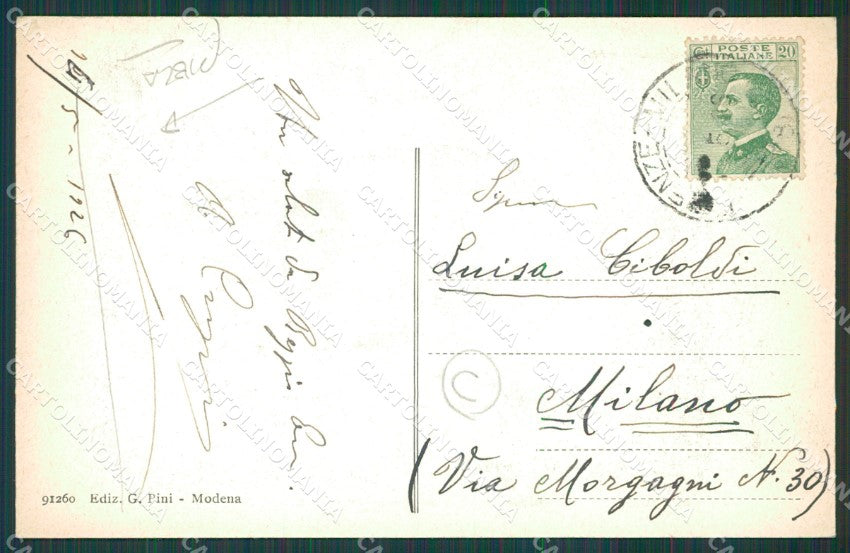 12/5-1926
saluti da Reggio Em.
POSTE
ITALIANE
20
Luisa Ciboldi
Milano
(Via Morgagni N. 30)
91260 Ediz. G. Pini - Modena
CARTOLINOMANIA